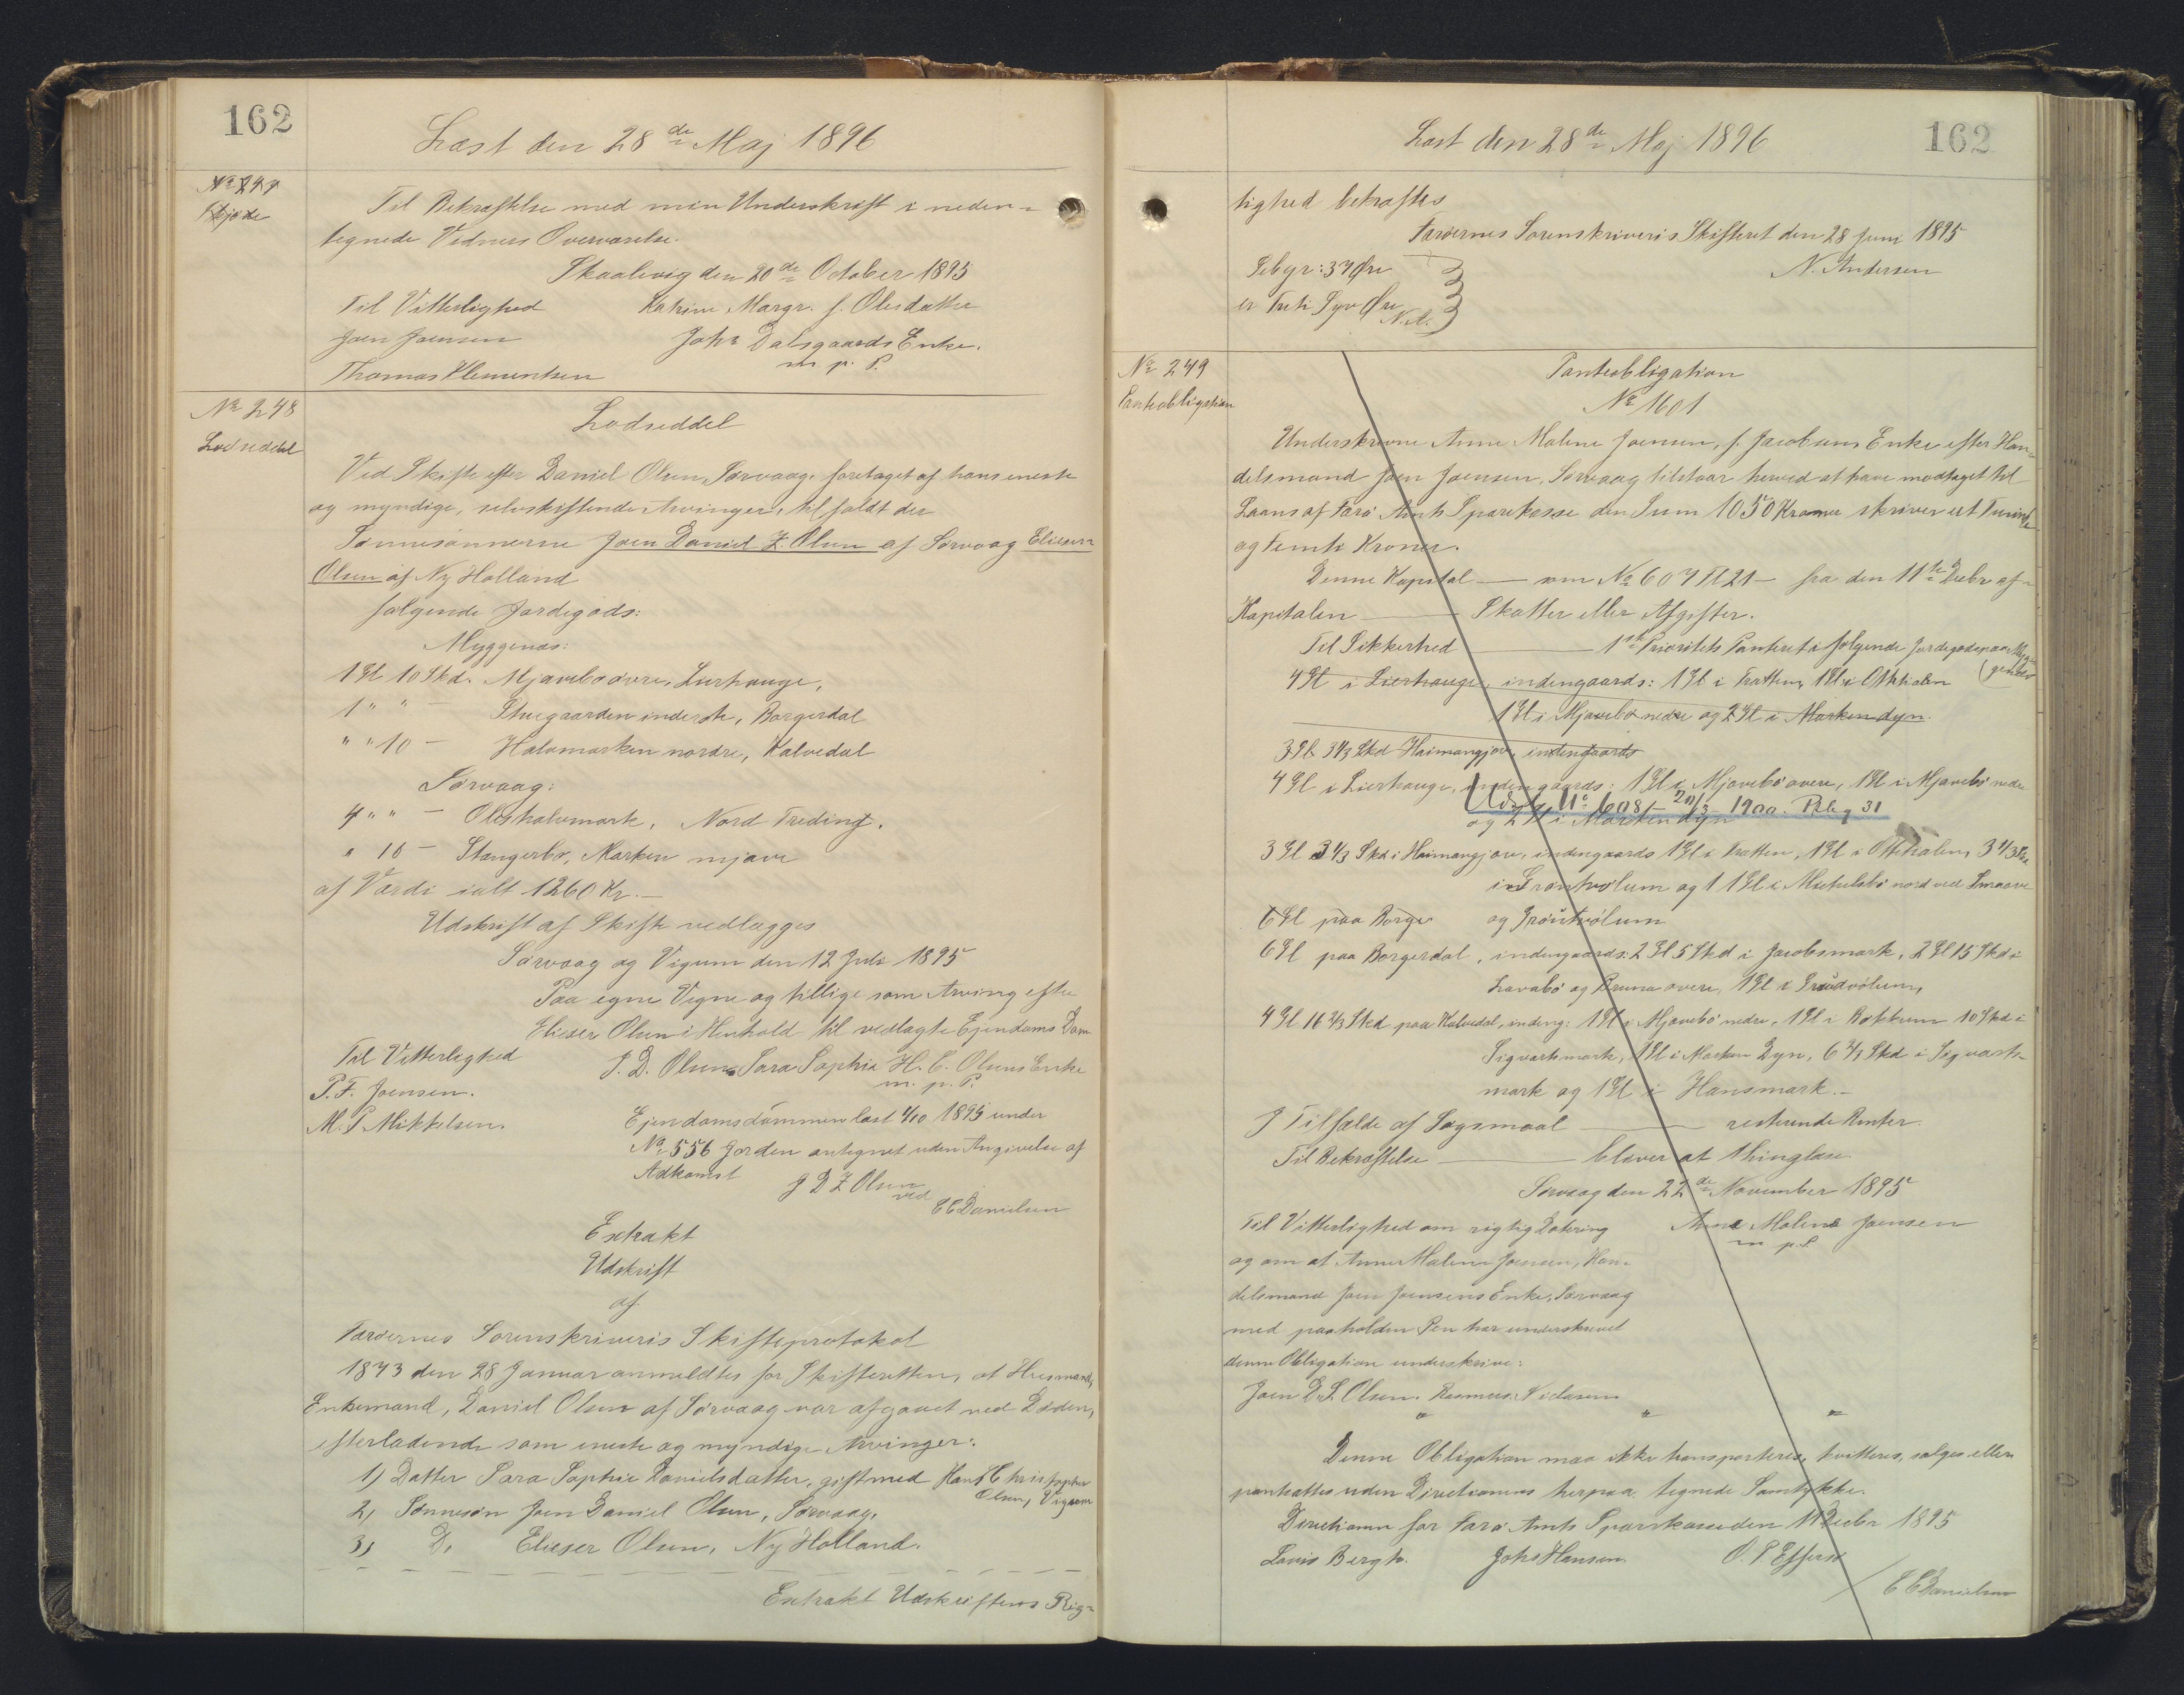 162
Læst den 28de Maj 1896
No 247
Skjøde
Til Bekræftelse med min Underskrift i neden-
tegnede Vidners Overværelse.
Skaalevig den 20de October 1895
Til Vitterlighed
Katrine Margr. f. Olesdatter
Joen Joensen
Johs Dalsgaards Enke.
m. p. P.
Thomas Klementsen
No 248
Lodseddel
Lodseddel
Ved Skifte efter Daniel Olsen, Sørvaag, foretaget af hans eneste
og myndige, selvskiftende Arvinger, tilfaldt der
Sønnesønnerne Joen Daniel Z. Olsen af Sørvaag Elieser
Olsen af Ny Holland
følgende Jordegods:
Myggenæs:
1 Gl 10 Skd. Mjavebø øvre, Lierhauge,
1 " " — Stuegaarden inderste, Borgerdal
" " 10 — Halvmarken nordre, Kalvedal
Sørvaag:
4 " " — Oleshalvmark, Nord Treding.
" 16 — Stangerbø, Marken mjave
af Værdi ialt 1260 Kr.—
Udskrift af Skifte vedlægges
Sørvaag og Vigum den 12 Juli 1895
Paa egne Vegne og tillige som Arving efter
Elieser Olsen i Henhold til vedlagte Ejendoms Dom
Til Vitterlighed
J. D. Olsen Sara Sophia H. C. Olsens Enke
m. p. P.
P. F. Joensen.
M. P. Mikkelsen.
Ejendomsdommen læst 4/10 1895 under
No 556 Jorden antegnet uden Angivelse af
Adkomst
J D Z Olsen
ved
C C Danielsen
Extrakt
Udskrift
af
Færøernes Sorenskriveris Skifteprotokol
1873 den 28 Januar anmeldtes for Skifteretten, at Husmand,
Enkemand, Daniel Olsen af Sørvaag var afgaaet ved Døden,
efterladende som eneste og myndige Arvinger:
1) Datter Sara Sophie Danielsdatter, gift med Hans Christopher
Olsen, Vigum
2, Sønnesøn Joen Daniel Olsen, Sørvaag,
3, D. Elieser Olsen, Ny Holland.
Extrakt Udskriftens Rig-
Læst den 28de Maj 1896
162
tighed bekræftes
Færøernes Sorenskriveris Skifteret den 28 Juni 1895
Gebyr: 37 Øre
N. Andersen
er Treti Syv Øre
N.A.
No 249
Panteobligation
Panteobligation
No 1601
Underskrevne Anne Malene Joensen, f. Jacobsens Enke efter Han-
delsmand Joen Joensen, Sørvaag tilstaar herved at have modtaget til
Laans af Færø Amts Sparekasse den Sum 1050 Kroner skriver et Tusinde
og Femti Kroner.
Denne Kapital — som No 607 Fl 21 — fra den 11te Decbr af-
Kapitalen — Skatter eller Afgifter.
Til Sikkerhed — 1ste Prioritets Panteret i følgende Jordegods paa Myg-
genæs
4 Gl i Lierhauge, indengaards: 1 Gl i Tratten, 1 Gl i Ottehalen
1 Gl i Mjavebø nedre og 2 Gl i Marken dyn.
3 Gl 3 1/3 Skd Heimangjov, indengaards
4 Gl i Lierhauge, indengaards: 1 Gl i Mjavebø øvere, 1 Gl i Mjavebø nedre
og 2 Gl i Marken dyn
Udsl. No 608 — 20/3 — 1900. Pbl. 9 31
3 Gl 3 1/3 Skd i Heimangjov, indengaards 1 Gl i Tratten, 1 Gl i Ottehalen, 3 1/3 Skd
i Grøntvølum og 1 Gl i Michelsbø nord ved Smaaver
6 Gl paa Borge og Grøntvølum
6 Gl paa Borgerdal, indengaards: 2 Gl 5 Skd i Jacobsmark, 2 Gl 15 Skd i
Lavabø og Bruna overe, 1 Gl i Grundvølum,
4 Gl 16 2/3 Skd paa Kalvedal, indeng: 1 Gl i Mjavebø nedre, 1 Gl i Bøkkum 10 Skd i
Sigvartsmark, 1 Gl i Marken Dyn, 6 2/3 Skd i Sigvarts-
mark og 1 Gl i Hansmark.—
I Tilfælde af Søgsmaal — resterende Renter.
Til Bekræftelse — bliver at thinglæse.
Sørvaag den 22de November 1895
Til Vitterlighed om rigtig Datering
Anne Malene Joensen
m. p. P.
og om at Anne Malene Joensen, Han-
delsmand Joen Joensens Enke, Sørvaag
med paaholden Pen har underskrevet
denne Obligation underskrive:
Joen D. Z. Olsen. Rasmus Nielasen
" " "
Denne Obligation maa ikke transporteres, kvitteres, sælges eller
pantsættes uden Directionens herpaa tegnede Samtykke.
Directionen for Færø Amts Sparekasse den 11 Decbr 1895
Louis Bergh. Johs Hansen O. P Effersø
C C Danielsen